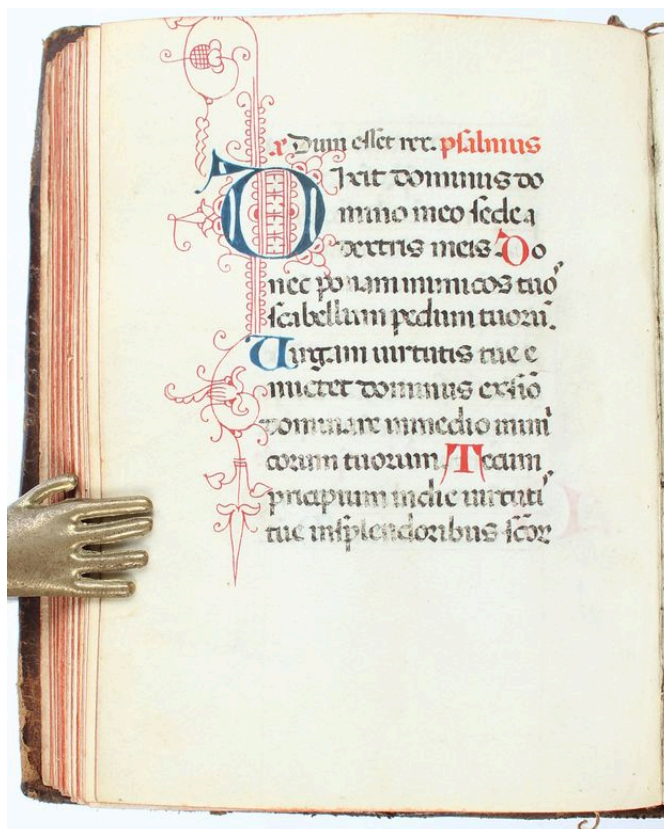 Dum esset rex. psalmus
Dixit dominus do
mino meo sede a
dextris meis. Do
nec ponam inimicos tuo
scabellum pedum tuorū.
Uirgam uirtutis tue e
mictet dominus exsiō
dominare inmedio inimi
corum tuorum. Tecum
principium indie uirtuti
tue insplendoribus scōꝝ